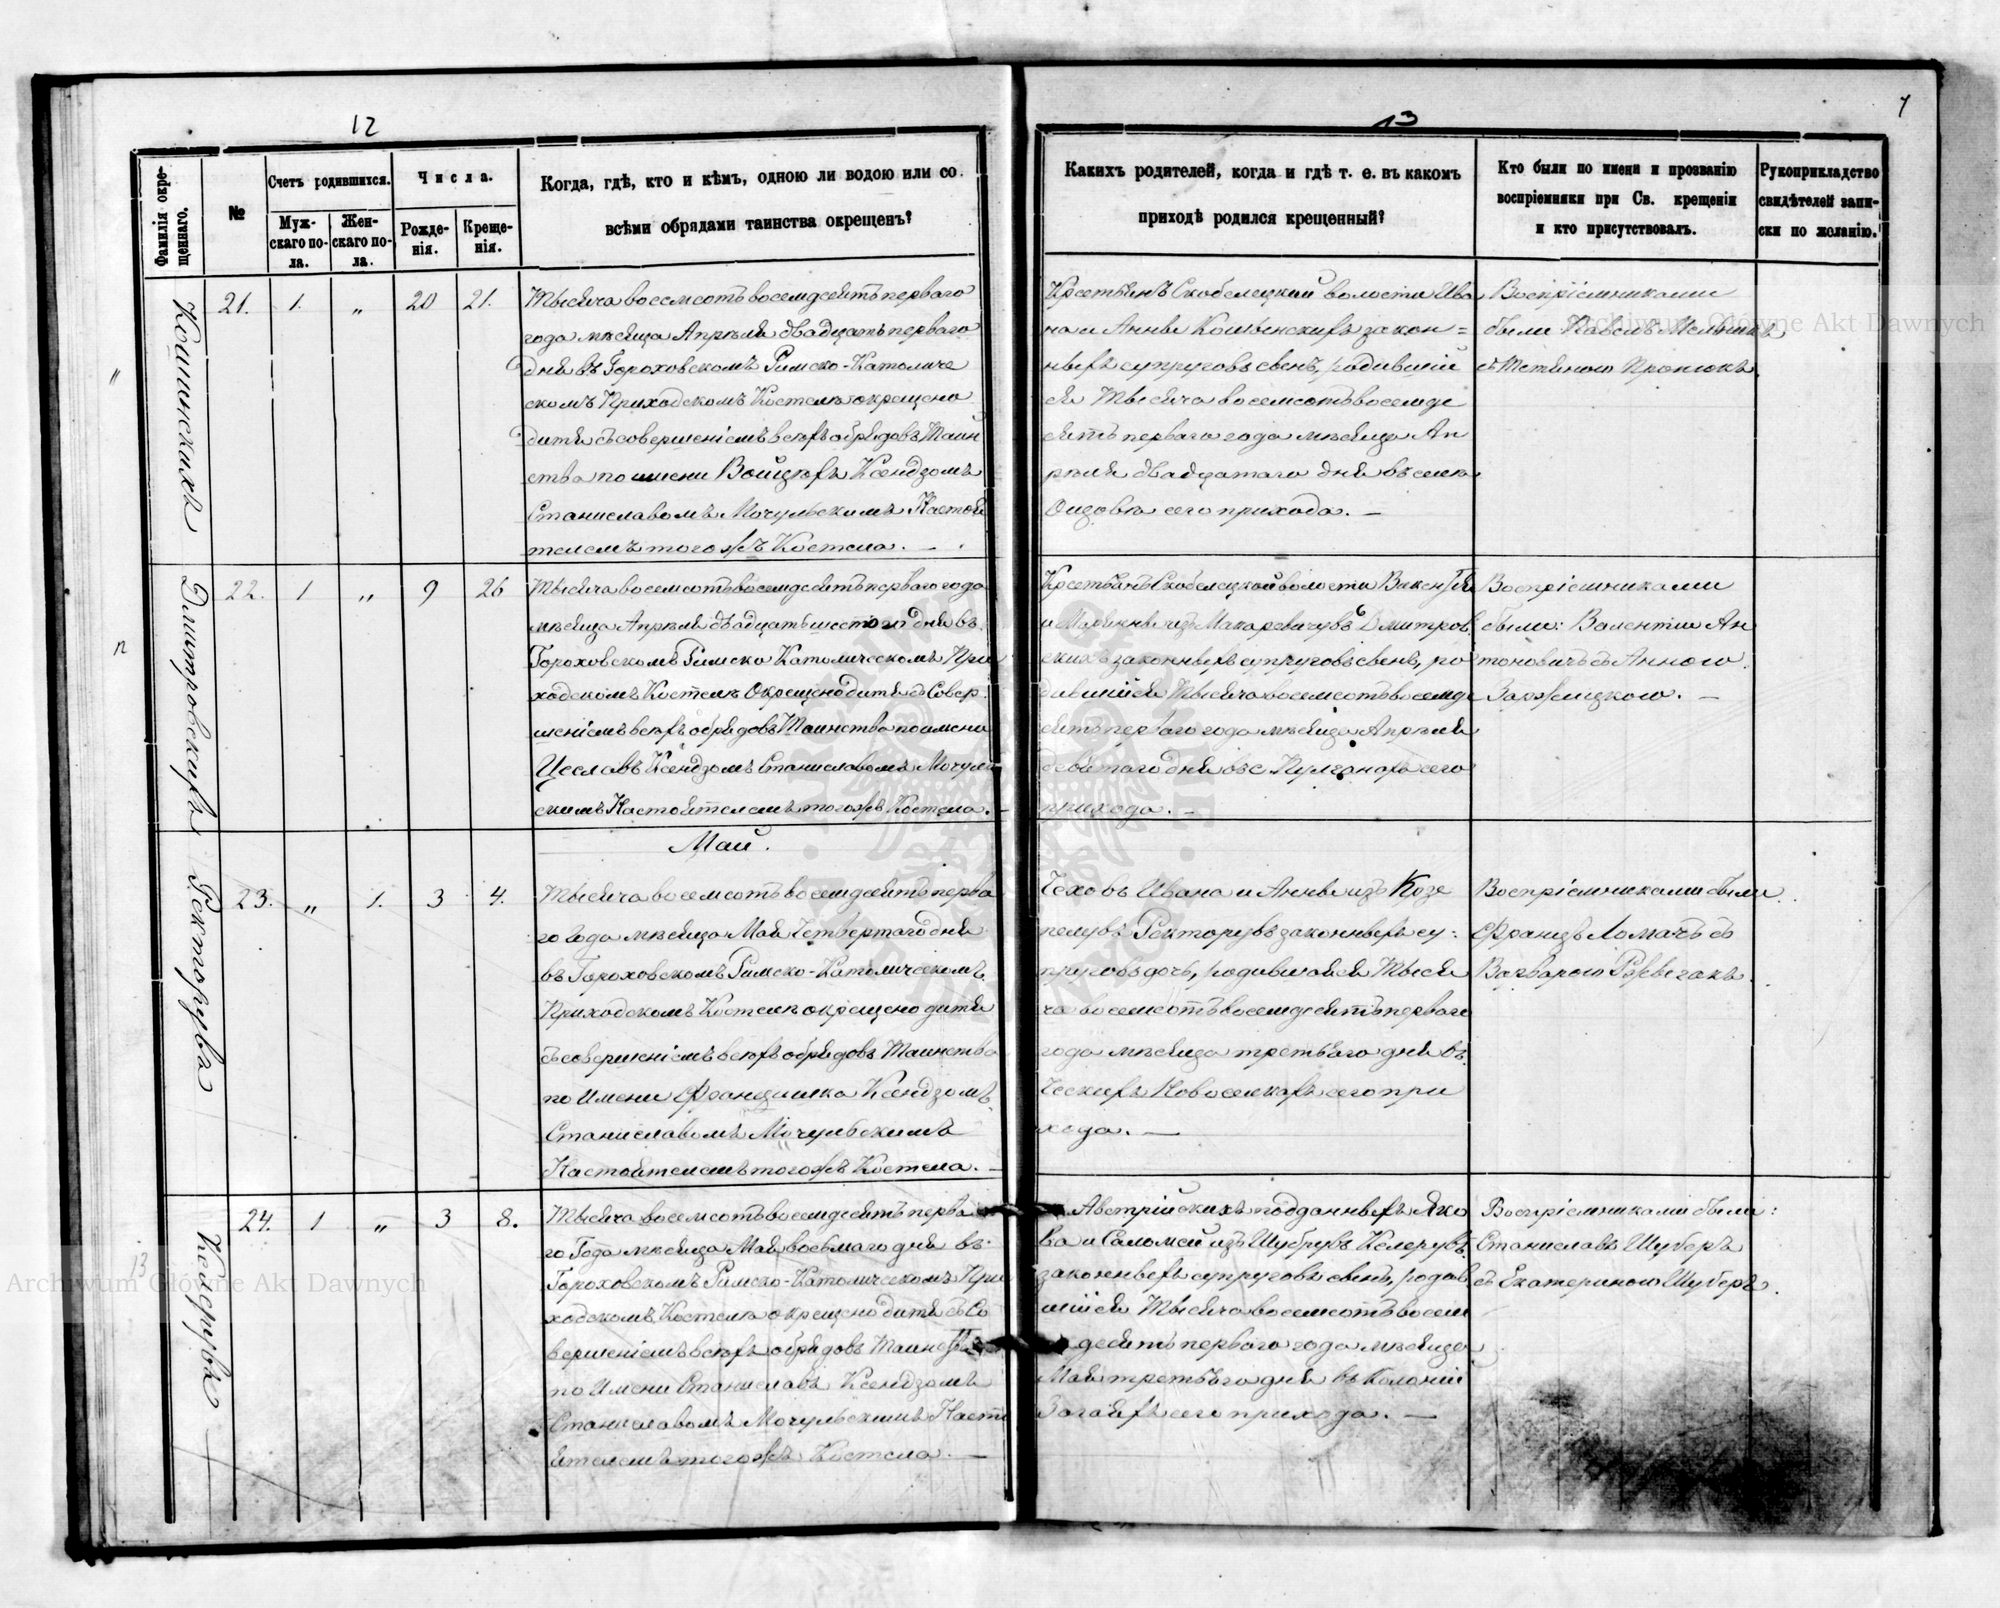 12
13
7
Фамилія окре-
щеннаго.
№
Счетъ родившихся.
Муж-
скаго по-
ла.
Жен-
скаго по-
ла.
Числа.
Рожде-
нія.
Креще-
нія.
Когда, гдѣ, кто и кѣмъ, одною ли водою или со
всѣми обрядами таинства окрещенъ?
Каких родителей, когда и гдѣ т. е. въ какомъ
приходѣ родился крещенный?
Кто были по имени и прозванію
воспріемники при Св. крещеніи
и кто присутствовалъ.
Рукоприкладство
свидѣтелей запи-
ски по желанію.
21. 1. „ 20 21.
Тысяча восемсотъ восемдесятъ перваго
года мѣсяца Апрѣля двадцать перваго
дня въ Гороховскомъ Римско-Католиче
скомъ Приходскомъ Костелѣ окрещено
дитя съ совершеніемъ всѣхъ обрядовъ Таин
ства по имени Войцѣхъ Ксендзомъ
Станиславомъ Мочульскимъ Настоя
телемъ того жъ Костела. —
Крестьянъ Скобелецкой волости Ива
на и Анны зако҃н=
ныхъ супруговъ сынъ, родившій
ся Тысяча восемсотъ восемде
сятъ перваго года мѣсяца Ап
рѣля двадцатаго дня въ селѣ
сего прихода. —
Воспріемниками
были Павелъ Мельникъ
съ
Дмитровскихъ
22. 1 „ 9 26
Тысяча восемсотъ восемдесятъ перваго года
мѣсяца Апрѣля двадцать шестого дня въ
Гороховскомъ Римско Католическомъ При
ходскомъ Костелѣ Окрещено дитя съ Совер
шеніемъ всѣхъ обрядовъ Таинства по имени
Цеславъ Ксендзомъ Станиславомъ Мочуль
скимъ Настоятелемъ того жъ Костела. —
Крестьянъ Скобелецкой волости Викентія
и Маріянны изъ Макаревичувъ Дмитров
скихъ законныхъ супруговъ сынъ, ро
дившійся Тысяча восемсотъ восемде
сятъ перваго года мѣсяца Апрѣля
девятаго дня въ с сего
прихода. —
Воспріемниками
были: Валентій Ан
тоновичъ съ Анною
Май.
Ректорува
23. „ 1. 3 4.
Тысяча восемсотъ восемдесятъ перва
го Года мѣсяца Мая Четвертаго дня
въ Гороховскомъ Римско-Католическомъ
Приходскомъ Костелѣ окрещено дитя
съ совершеніемъ всѣхъ обрядовъ Таинства
по Имени Францишка Ксендзомъ
Станиславомъ Мочульскимъ
Настоятелемъ того жъ Костела. —
Чеховъ Ивана и Анны изъ Козе
Ректорувъ законныхъ су
пруговъ дочь, родившаяся Тыся
ча восемсотъ восемдесятъ перваго
года мѣсяца третьяго дня въ
Ческихъ Новоселкахъ сего при
хода. —
Воспріемниками были
Францъ Ломачъ съ
Варварою
24. 1 „ 3 8.
Тысяча восемсотъ восемдесятъ перва
го Года мѣсяца Мая восьмаго дня въ
Гороховскомъ Римско-Католическомъ При
ходскомъ Костелѣ окрещено дитя съ Со
вершеніемъ всѣхъ обрядовъ Таинства
по Имени Станиславъ Ксендзомъ
Станиславомъ Мочульскимъ Насто
ятелемъ того жъ Костела. —
Австрійскихъ подданныхъ Яко
ва и Саломеи изъ Шубрувъ Келерувъ
законныхъ супруговъ сынъ, родив
шійся Тысяча восемсотъ восем
десятъ перваго года мѣсяца
Мая третьяго дня въ Колоніи
Загаяхъ сего прихода. —
Воспріемниками были:
Станиславъ Шуберъ
съ Екатериною Шуберъ.
Archiwum Główne Akt Dawnych
Archiwum Główne Akt Dawnych